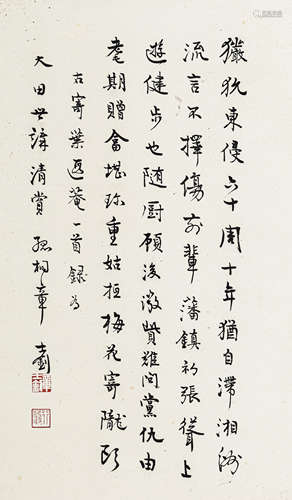 玁狁東侵六十周十年猶自滯湘洲
流言不擇傷前輩藩鎮初張聳上
遊健步也隨厨顧後激貲難問黨仇由
耄期贈畣堪珍重姑梅花寄隴頭
右寄葉遐菴一首錄為
大田世講清賞 孤桐章士釗